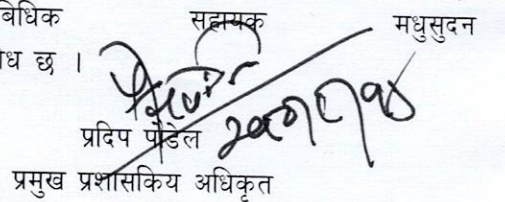 बिधिक सहायक मधुसुदन
ध छ ।
प्रदिप पौडेल
प्रमुख प्रशासकिय अधिकृत